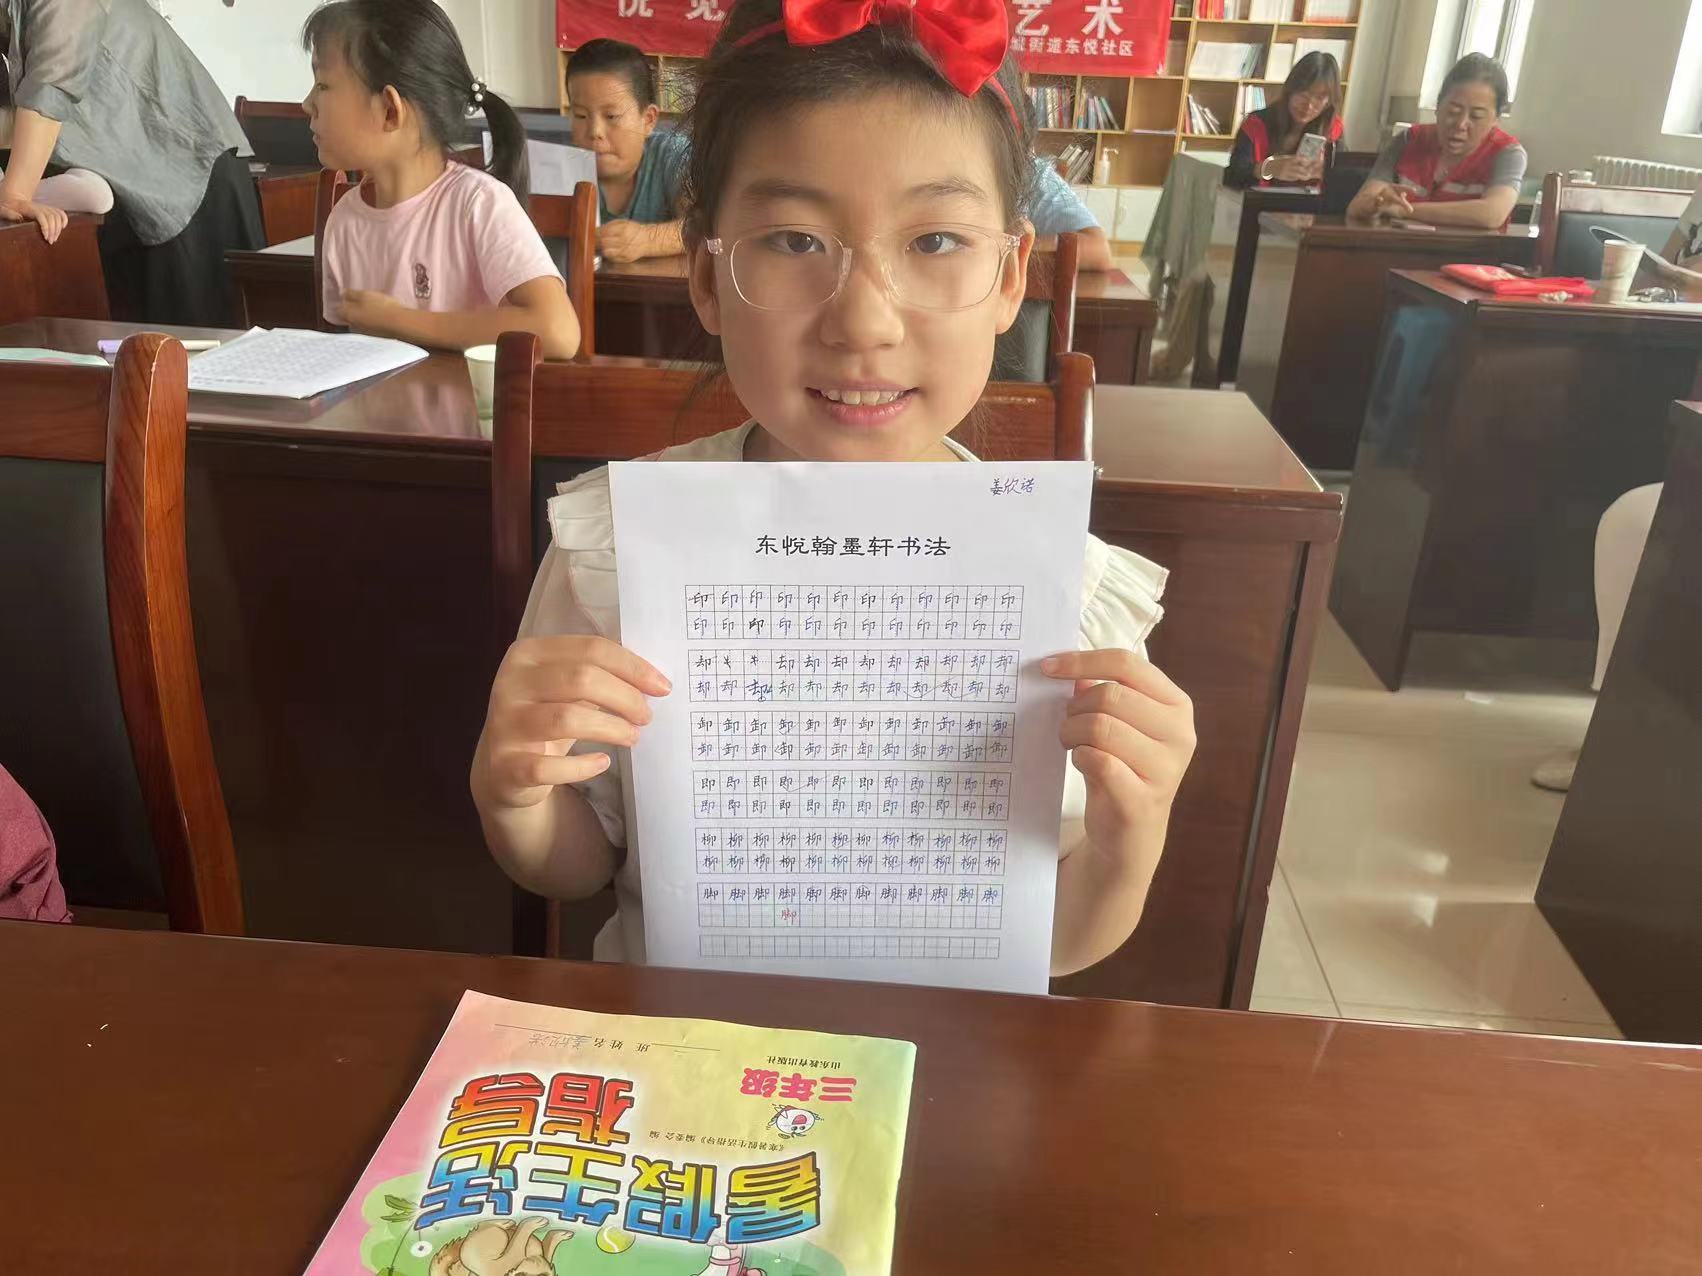 悦 览
艺 术
城街道东悦社区
姜欣诺
东悦翰墨轩书法
印 印 印 印 印 印 印 印 印 印 印 印
印 印 印 印 印 印 印 印 印 印 印 印
却 却 却 却 却 却 却 却 却 却
却 却 却 却 却 却 却 却 却 却 却 却
卸 卸 卸 卸 卸 卸 卸 卸 卸 卸 卸 卸
卸 卸 卸 卸 卸 卸 卸 卸 卸 卸 卸 卸
即 即 即 即 即 即 即 即 即 即 即 即
即 即 即 即 即 即 即 即 即 即 即 即
柳 柳 柳 柳 柳 柳 柳 柳 柳 柳 柳 柳
柳 柳 柳 柳 柳 柳 柳 柳 柳 柳 柳 柳
脚 脚 脚 脚 脚 脚 脚 脚 脚 脚 脚 脚
脚
暑假生活
指导
《寒暑假生活指导》编委会 编
三年级
山东教育出版社
班 姓名 姜欣诺